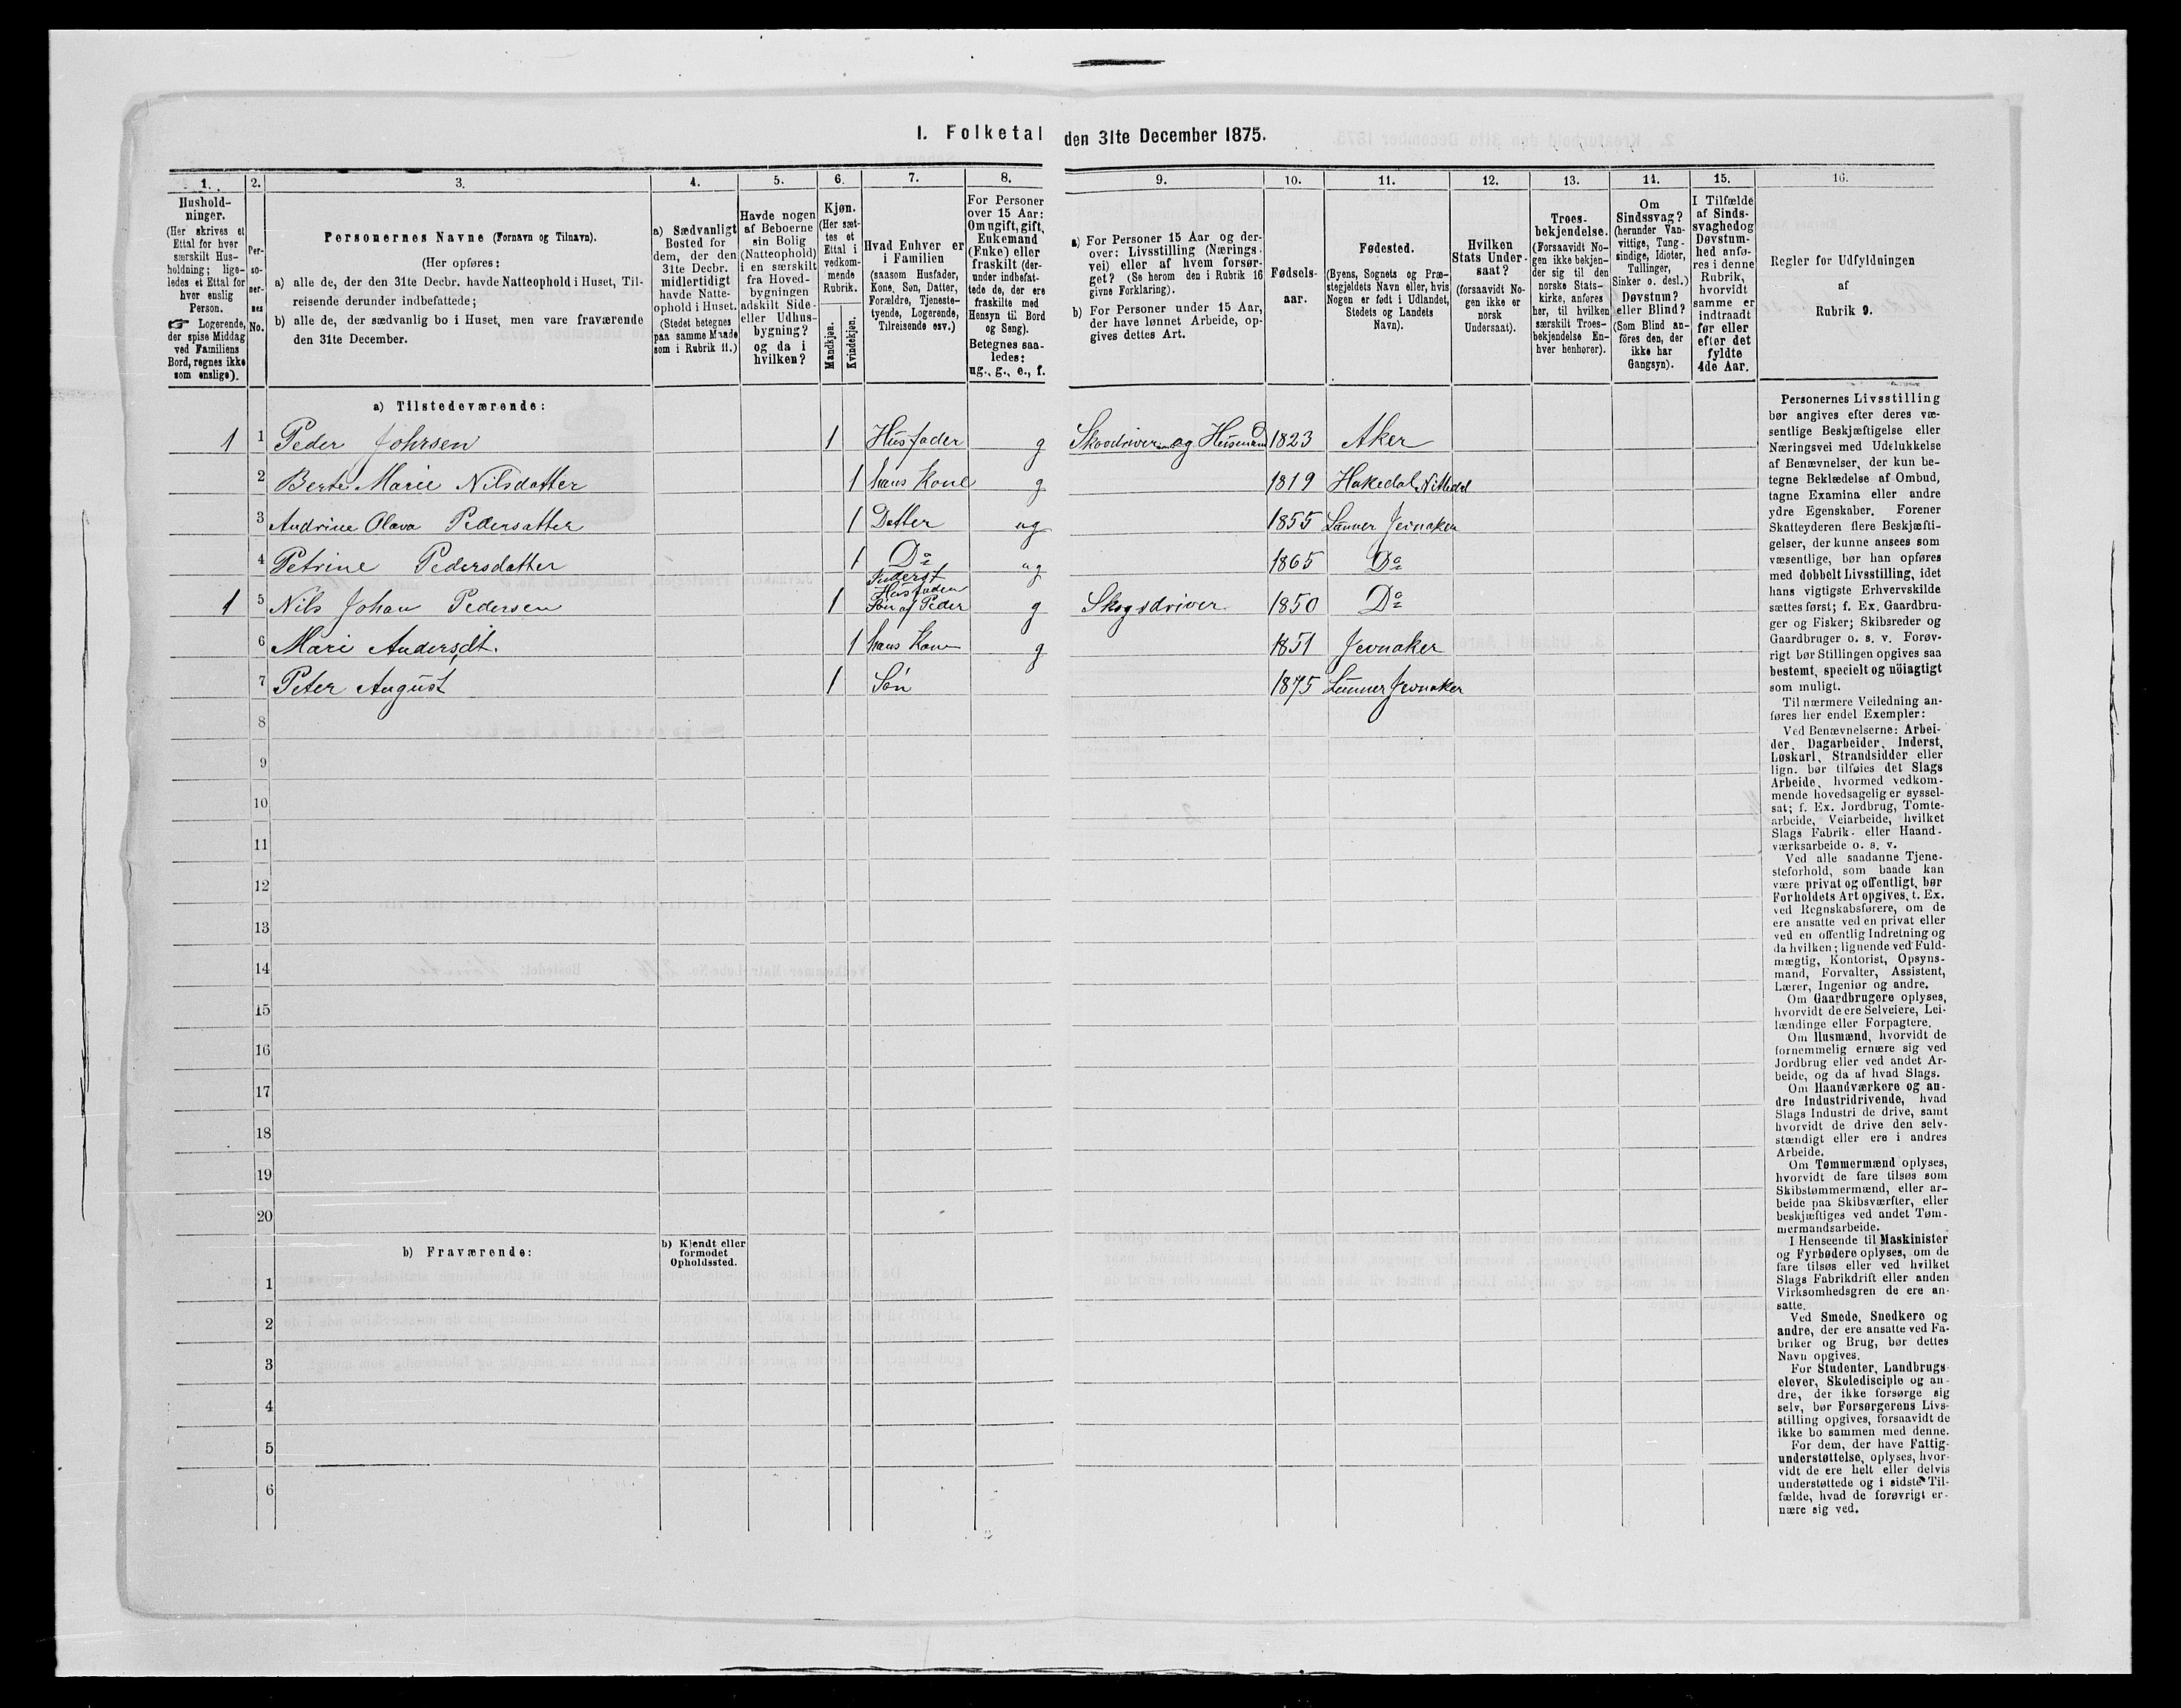 I. Folketal den 31te December 1875.
1. 2. 3. 4. 5. 6. 7. 8. 9. 10. 11. 12. 13. 14. 15. 16.
Hushold-
ninger.
(Her skrives et
Ettal for hver
særskilt Hus-
holdning; lige-
ledes et Ettal for
hver enslig
Person.
☞ Logerende,
der spise Middag
ved Familiens
Bord, regnes ikke
som enslige).
Per-
so-
ner-
nes
No.
Personernes Navne (Fornavn og Tilnavn).
(Her opføres:
a) alle de, der den 31te Decbr. havde Natteophold i Huset, Til-
reisende derunder indbefattede;
b) alle de, der sædvanlig bo i Huset, men vare fraværende
den 31te December.
a) Sædvanligt
Bosted for
dem, der den
31te Decbr.
midlertidigt
havde Natte-
ophold i Huset.
(Stedet betegnes
paa samme Maade
som i Rubrik 11.)
Havde nogen
af Beboerne
sin Bolig
(Natteophold)
i en særskilt
fra Hoved-
bygningen
adskilt Side-
eller Udhus-
bygning?
og da i
hvilken?
Kjøn.
(Her sæt-
tes et
Ettal i
vedkom-
mende
Rubrik.
Mandkjøn.
Kvindekjøn.
Hvad Enhver er
i Familien
(saasom Husfader,
Kone, Søn, Datter,
Forældre, Tjeneste-
tyende, Logerende,
Tilreisende osv.)
For Personer
over 15 Aar:
Om ugift, gift,
Enkemand
(Enke) eller
fraskilt (der-
under indbefat-
tede de, der ere
fraskilte med
Hensyn til Bord
og Seng).
Betegnes saa-
ledes:
ug., g., e., f.
a) For Personer 15 Aar og der-
over: Livsstilling (Nærings-
vei) eller af hvem forsør-
get? (Se herom den i Rubrik 16
givne Forklaring).
b) For Personer under 15 Aar,
der have lønnet Arbeide, op-
gives dettes Art.
Fødsels-
aar.
Fødested.
(Byens, Sognets og Præ-
stegjeldets Navn eller, hvis
Nogen er født i Udlandet,
Stedets og Landets
Navn).
Hvilken
Stats Under-
saat?
(forsaavidt No-
gen ikke er
norsk
Undersaat).
Troes-
bekjendelse.
(Forsaavidt No-
gen ikke bekjen-
der sig til den
norske Stats-
kirke, anføres
her, til hvilken
særskilt Troes-
bekjendelse En-
hver henhører).
Om
Sindssvag?
(herunder Van-
vittige, Tung-
sindige, Idioter,
Tullinger,
Sinker o. desl.)
Døvstum?
eller Blind?
(Som Blind an-
föres den, der
ikke har
Gangsyn).
I Tilfælde
af Sinds-
svaghed og
Døvstum-
hed anfø-
res i denne
Rubrik,
hvorvidt
samme er
indtraadt
før eller
efter det
fyldte
4de Aar.
Regler for Udfyldningen
af
Rubrik 9.
a) Tilstedeværende:
1 1 Peder Johrsen 1 Husfader g Skovdriver og Husmand 1823 Aker
2 Berte Marie Nilsdatter 1 hans Kone g 1819 Hakedal Nittedal
3 Andrine Olava Pedersatter 1 Datter ug 1855 Lunner Jevnaker
4 Petrine Pedersdatter 1 Do ug 1865 Do
1 5 Nils Johan Pedersen 1 Inderst Husfader Søn af Peder g Skogsdriver 1850 Do
6 Mari Andersdt. 1 hans Kone g 1851 Jevnaker
7 Peter August 1 Søn 1875 Lunner Jevnaker
8
9
10
11
12
13
14
15
16
17
18
19
20
b) Fraværende:
b) Kjendt eller
formodet
Opholdssted.
1
2
3
4
5
6
Personernes Livsstilling
bør angives efter deres væ-
sentlige Beskjæftigelse eller
Næringsvei med Udelukkelse
af Benævnelser, der kun be-
tegne Beklædelse af Ombud,
tagne Examina eller andre
ydre Egenskaber. Forener
Skatteyderen flere Beskjæfti-
gelser, der kunne ansees som
væsentlige, bør han opføres
med dobbelt Livsstilling, idet
hans vigtigste Erhvervskilde
sættes først; f. Ex. Gaardbru-
ger og Fisker; Skibsreder og
Gaardbruger o. s. v. Forøv-
rigt bør Stillingen opgives saa
bestemt, specielt og nöiagtigt
som muligt.
Til nærmere Veiledning an-
føres her endel Exempler:
Ved Benævnelserne: Arbei-
der, Dagarbeider, Inderst,
Løskarl, Strandsidder eller
lign. bør tilføies det Slags
Arbeide, hvormed vedkom-
mende hovedsagelig er syssel-
sat; f. Ex. Jordbrug, Tomte-
arbeide, Veiarbeide, hvilket
Slags Fabrik- eller Haand-
værksarbeide o. s. v.
Ved alle saadanne Tjene-
steforhold, som baade kan
være privat og offentligt, bør
Forholdets Art opgives, f. Ex.
ved Regnskabsførere, om de
ere ansatte ved en privat eller
ved en offentlig Indretning og
da hvilken; lignende ved Fuld-
mægtig, Kontorist, Opsyns-
mand, Forvalter, Assistent,
Lærer, Ingeniør og andre.
Om Gaardbrugere oplyses,
hvorvidt de ere Selveiere, Lei-
lændinge eller Forpagtere.
Om Husmænd, hvorvidt de
fornemmelig ernære sig ved
Jordbrug eller ved andet Ar-
beide, og da af hvad Slags.
Om Haandværkere og an-
dre Industridrivende, hvad
Slags Industri de drive, samt
hvorvidt de drive den selv-
stændigt eller ere i andres
Arbeide.
Om Tømmermænd oplyses,
hvorvidt de fare tilsøs som
Skibstømmermænd, eller ar-
beide paa Skibsværfter, eller
beskjæftiges ved andet Tøm-
mermandsarbeide.
I Henseende til Maskinister
og Fyrbødere oplyses, om de
fare tilsøs eller ved hvilket
Slags Fabrikdrift eller anden
Virksomhedsgren de ere an-
satte.
Ved Smede, Snedkere og
andre, der ere ansatte ved Fa-
briker og Brug, bør dettes
Navn opgives.
For Studenter, Landbrugs-
elever, Skoledisciple og an-
dre, der ikke forsørge sig
selv, bør Forsørgerens Livs-
stilling opgives, forsaavidt de
ikke bo sammen med denne.
For dem, der have Fattig-
understøttelse, oplyses, hvor-
vidt de ere helt eller delvis
understøttede og i sidste Til-
fælde, hvad de forøvrigt er-
nære sig ved.